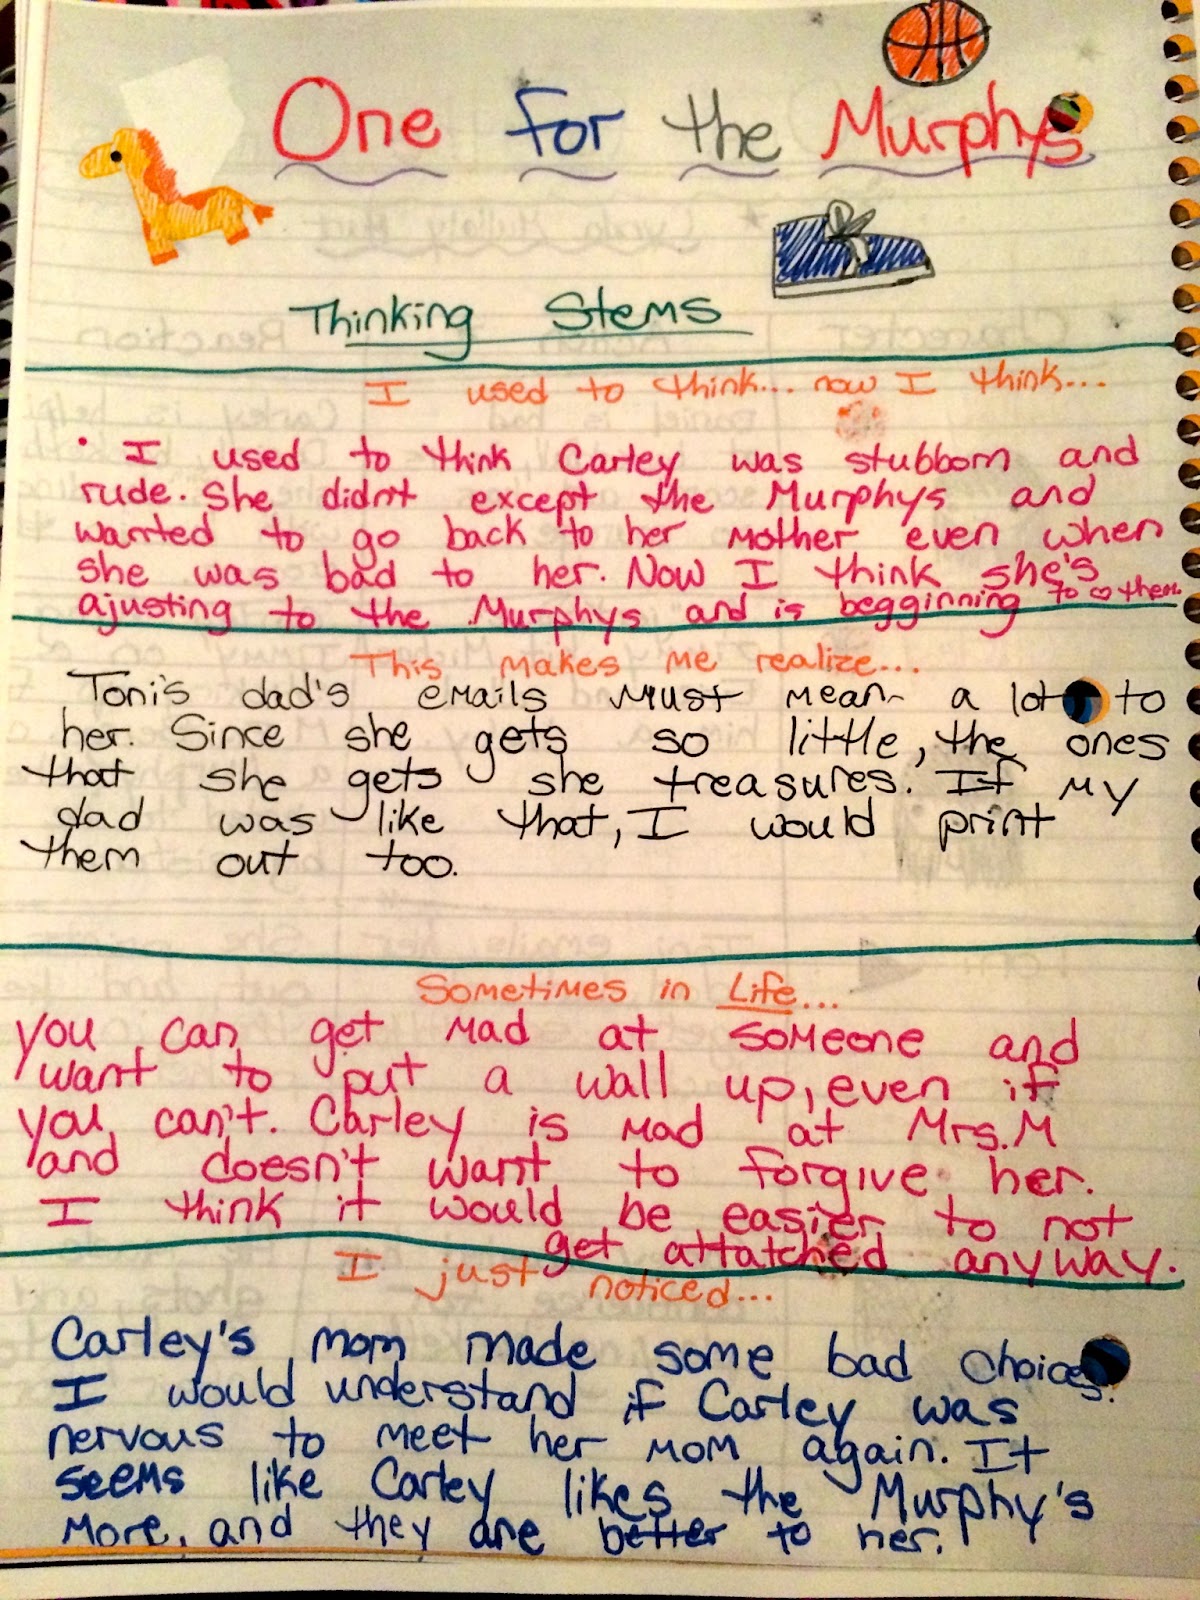 One for the Murphys
Thinking Stems
I used to think... now I think...
• I used to think Carley was stubborn and
rude. She didn't except the Murphys and
wanted to go back to her mother even when
she was bad to her. Now I think she's
ajusting to the Murphys and is begginning to ♡ them
This makes me realize...
Toni's dad's emails must mean a lot to
her. Since she gets so little, the ones
that she gets she treasures. If my
dad was like that, I would print
them out too.
Sometimes in Life...
you can get mad at someone and
want to put a wall up, even if
you can't. Carley is mad at Mrs. M
and doesn't want to forgive her.
I think it would be easier to not
get attatched anyway.
I just noticed...
Carley's mom made some bad choices.
I would understand if Carley was
nervous to meet her mom again. It
seems like Carley likes the Murphy's
more, and they are better to her.